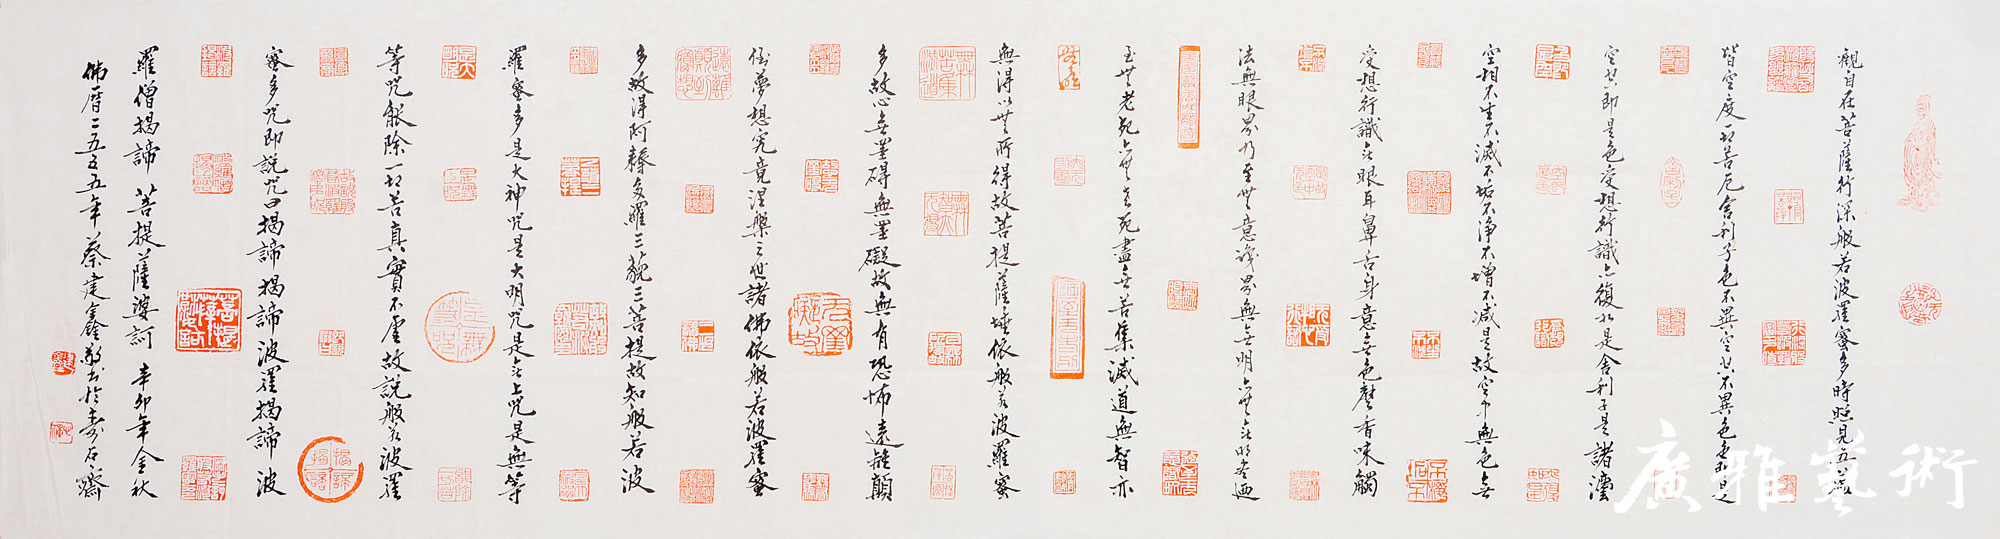 觀自在菩薩行深般若波羅蜜多時照見五蘊
皆空度一切苦厄舍利子色不異空空不異色色即是
空空即是色受想行識亦復如是舍利子是諸法
空相不生不滅不垢不淨不增不減是故空中無色無
受想行識無眼耳鼻舌身意無色聲香味觸
法無眼界乃至無意識界無無明亦無無明盡迺
至無老死亦無老死盡無苦集滅道無智亦
無得以無所得故菩提薩埵依般若波羅蜜
多故心無罣碍無罣礙故無有恐怖遠離顛
倒夢想究竟涅槃三世諸佛依般若波羅蜜
多故得阿耨多羅三藐三菩提故知般若波
羅蜜多是大神咒是大明咒是無上咒是無等
等咒能除一切苦真實不虛故說般若波羅
蜜多咒即說咒曰揭諦揭諦波羅揭諦波
羅僧揭諦 菩提薩婆訶 辛卯年金秋
佛曆二五五五年蔡建鑫敬書於壽石齋
廣雅藝術